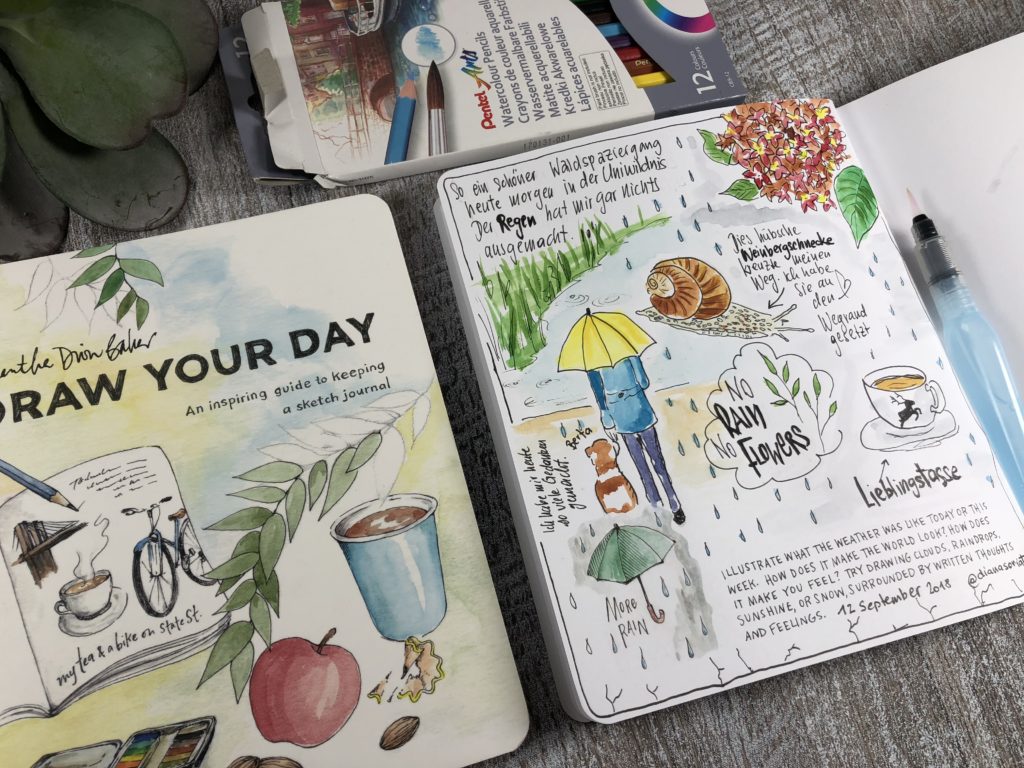 12
Pentel Arts
Watercolour Pencils
Crayons de couleur aquarell
Wasservermalbare Farbsti
Matite acquerellabili
Kredki Akwarelowe
Lápices acuarelables
170131-001
12
DRAW YOUR DAY
An inspiring guide to keeping
a sketch journal
my tea & a bike on State St.
So ein schöner Waldspaziergang
heute morgen in der Uniwildnis
Der Regen hat mir gar nichts
ausgemacht.
Dies hübsche
Weinbergschnecke
kreuzte meinen
Weg. Ich habe
sie an
den
Wegrand
gesetzt
NO
RAIN
NO
FLOWERS
Lieblingstasse
Ich habe mir heute
so viele Gedanken
gemacht.
MORE
RAIN
ILLUSTRATE WHAT THE WEATHER WAS LIKE TODAY OR THIS
WEEK. HOW DOES IT MAKE THE WORLD LOOK? HOW DOES
IT MAKE YOU FEEL? TRY DRAWING CLOUDS, RAINDROPS,
SUNSHINE, OR SNOW, SURROUNDED BY WRITTEN THOUGHTS
AND FEELINGS.
12 September 2018